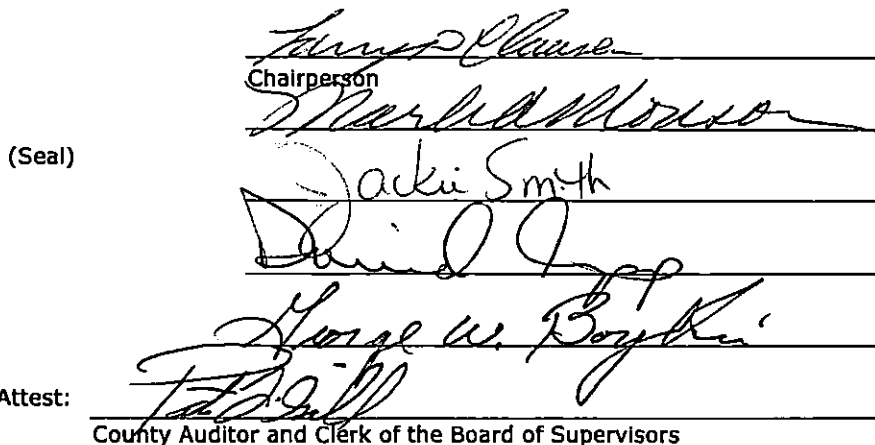 Larry D Clausen
Chairperson
Mark A Monson
(Seal)
Jackie Smith
David Tripp
George W. Boykin
Attest: Pat Gill
County Auditor and Clerk of the Board of Supervisors